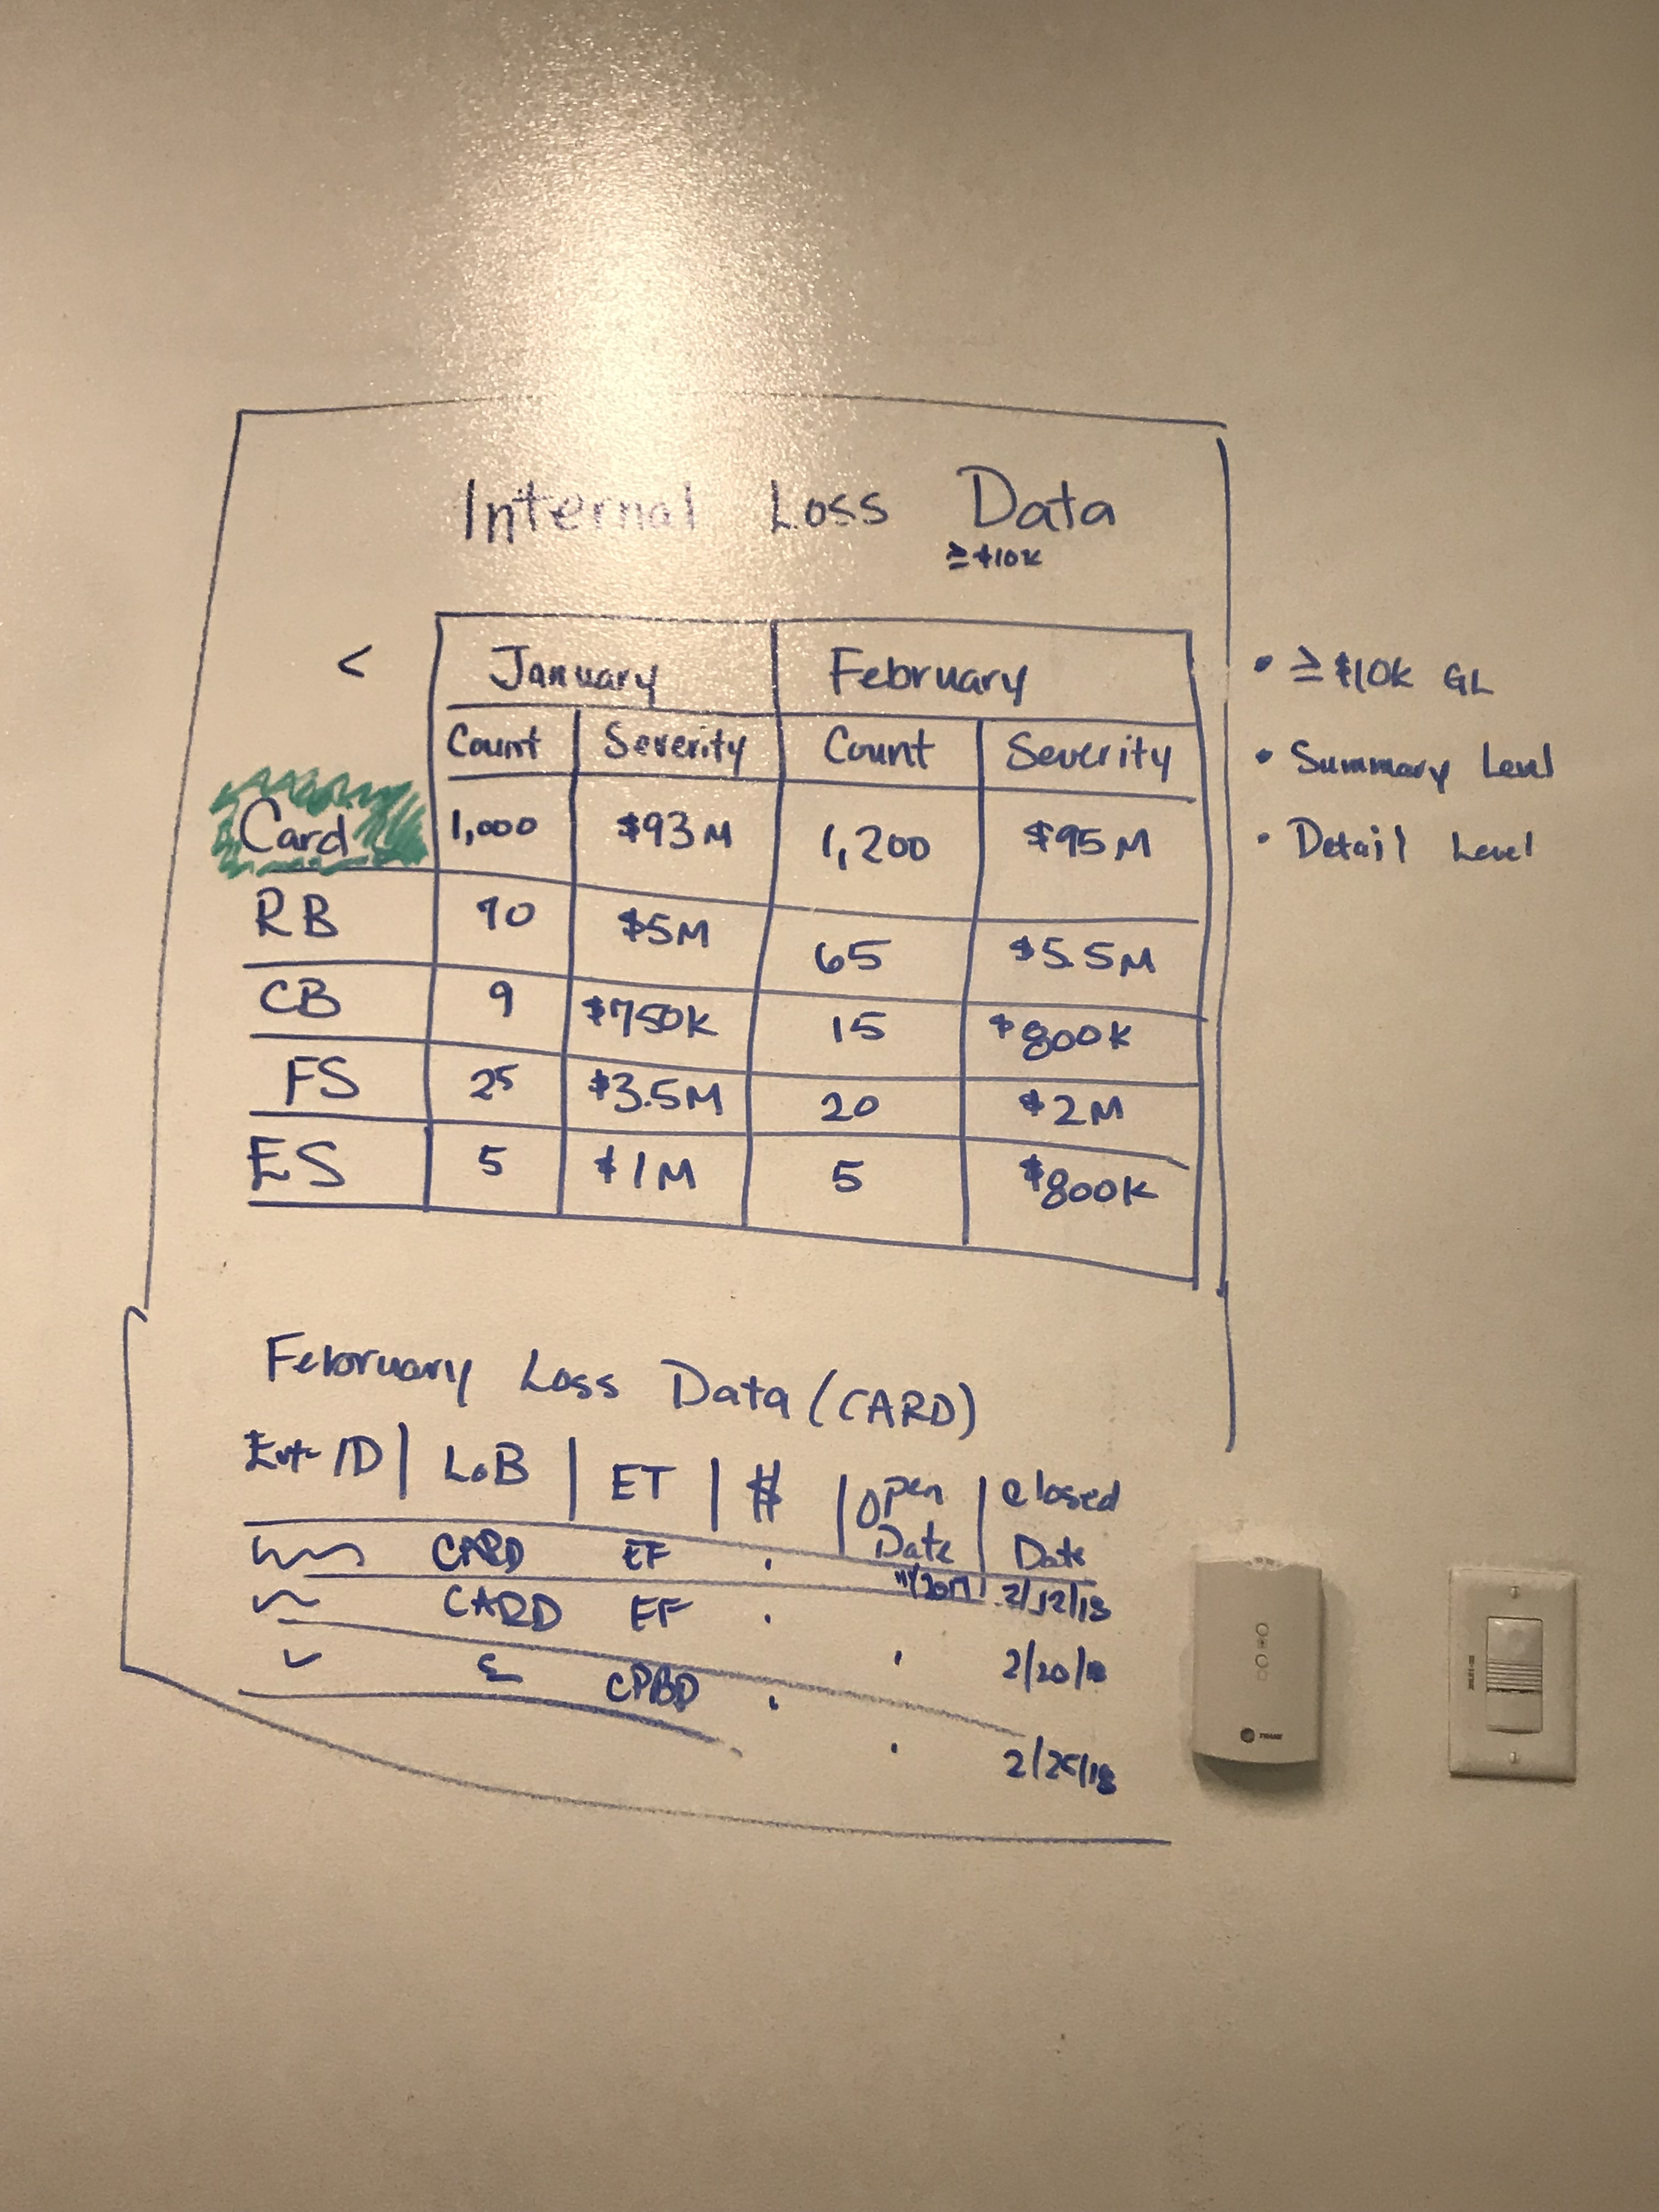 Internal Loss Data
≥$10K
< January February
Count Severity Count Severity
Card 1,000 $93M 1,200 $95M
RB 70 $5M 65 $5.5M
CB 9 $750K 15 $800K
FS 25 $3.5M 20 $2M
ES 5 $1M 5 $800K
• ≥$10K GL
• Summary Level
• Detail Level
February Loss Data (CARD)
ID | LoB | ET | $ | Open Date | Closed Date
CARD EF 2/12/18
CARD EF 2/20/18
CPBD 2/25/18
TRANE